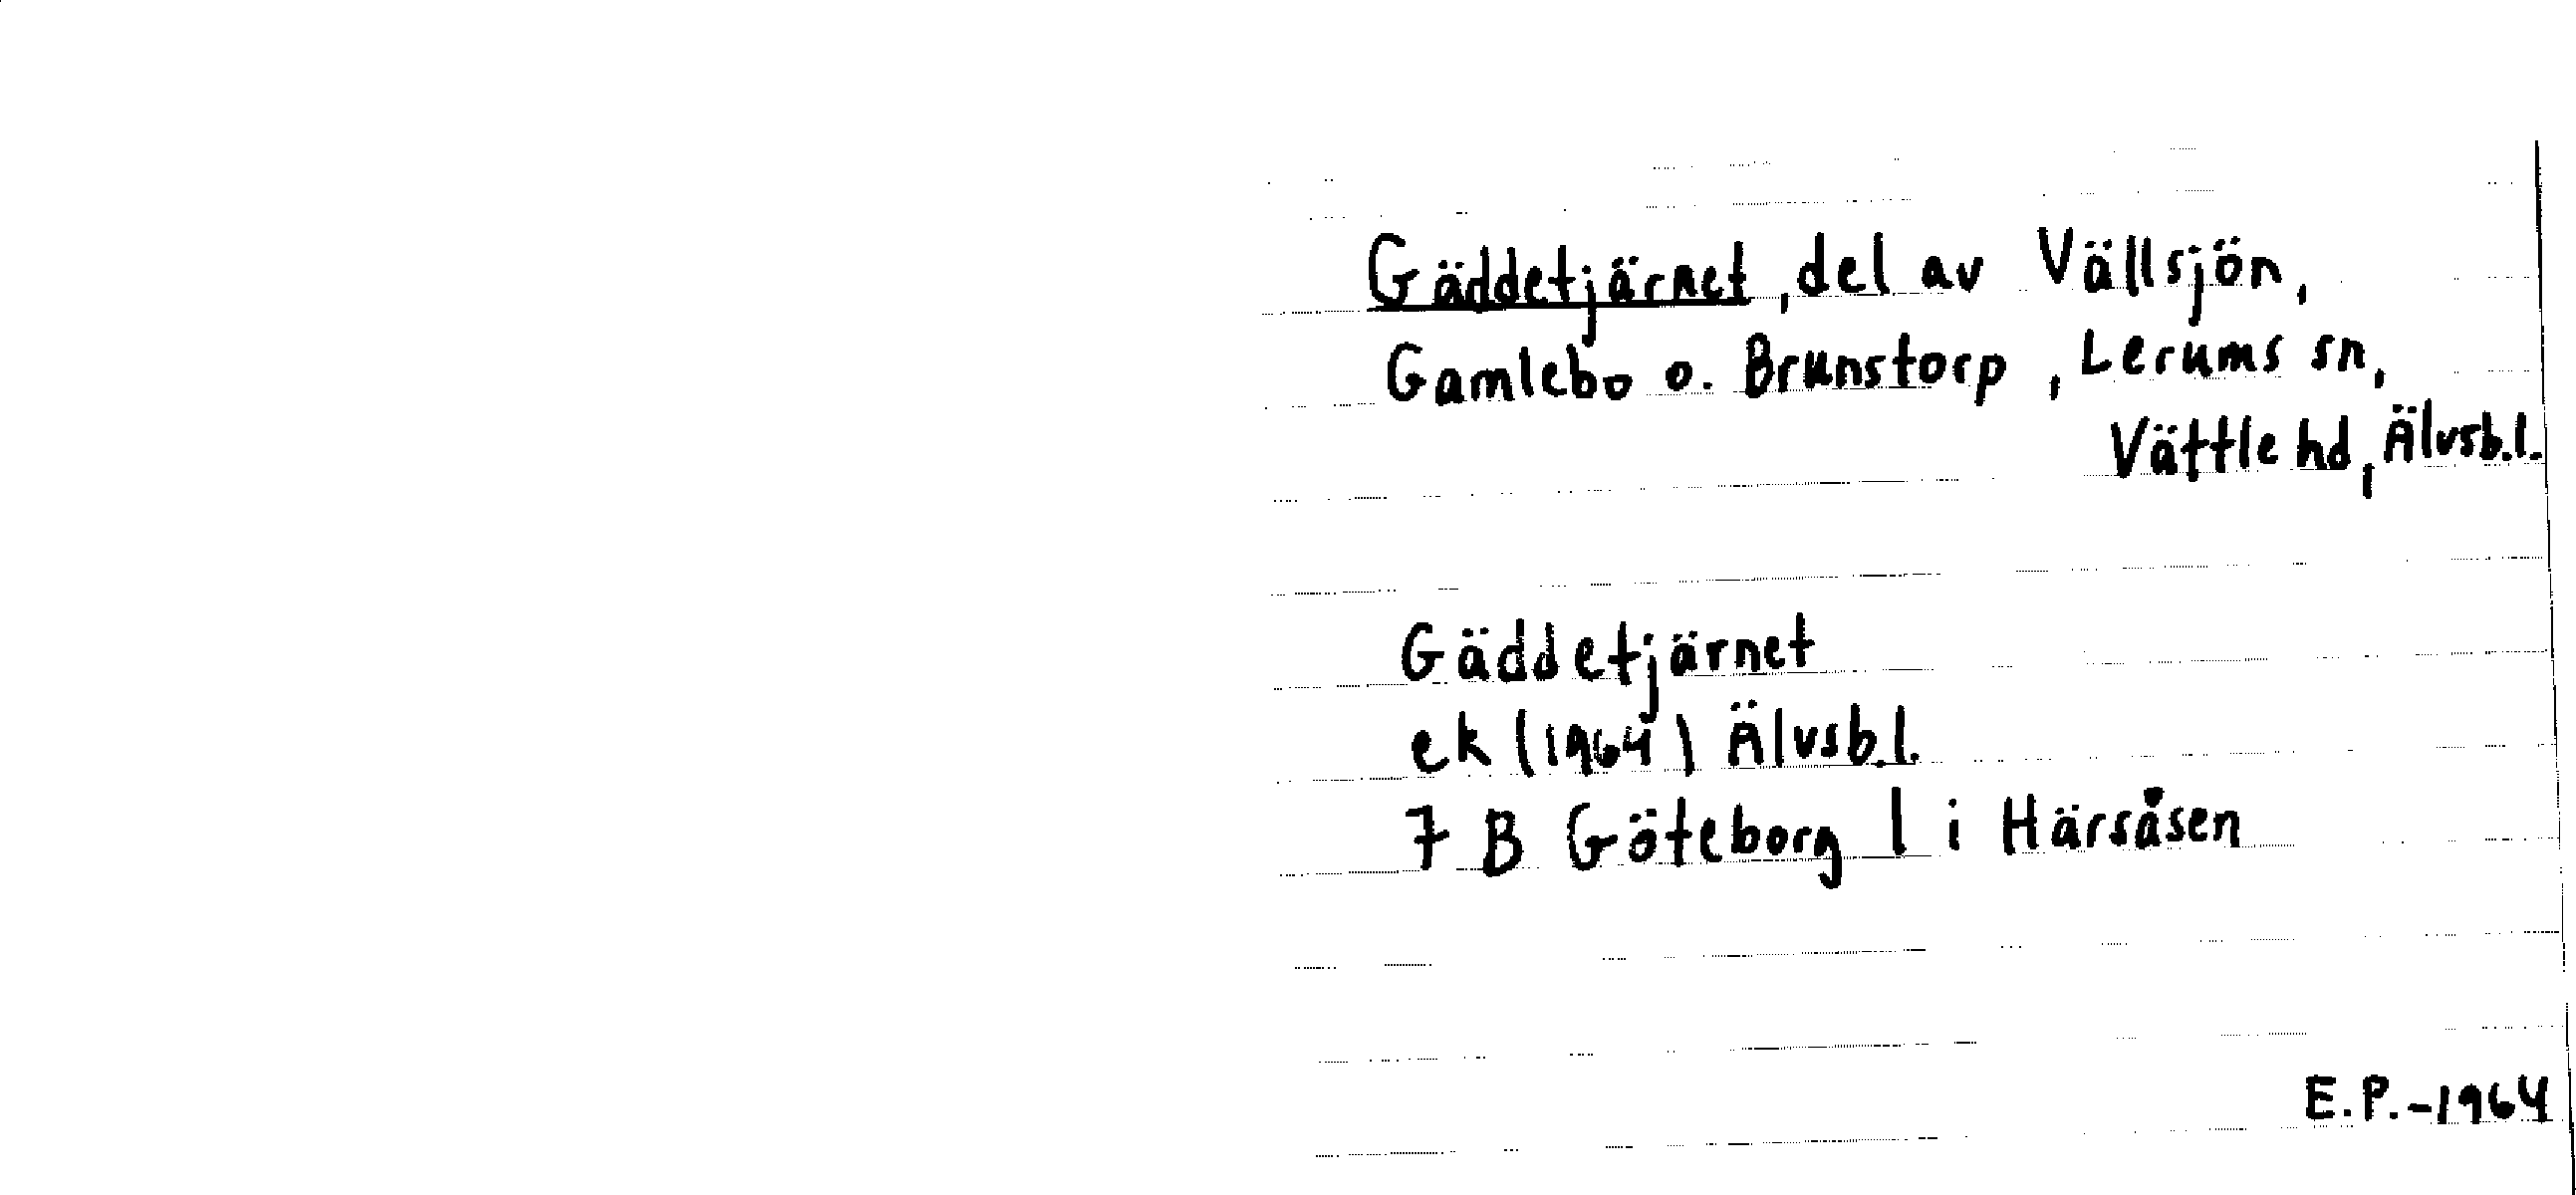 Gäddetjärnet, del av Vällsjön,
Gamlebo o. Brunstorp, Lerums sn,
Vättle hd, Älvsb.l.
Gäddetjärnet
ek (1964) Älvsb.l.
7 B Göteborg l i Härsåsen
E.P.-1964